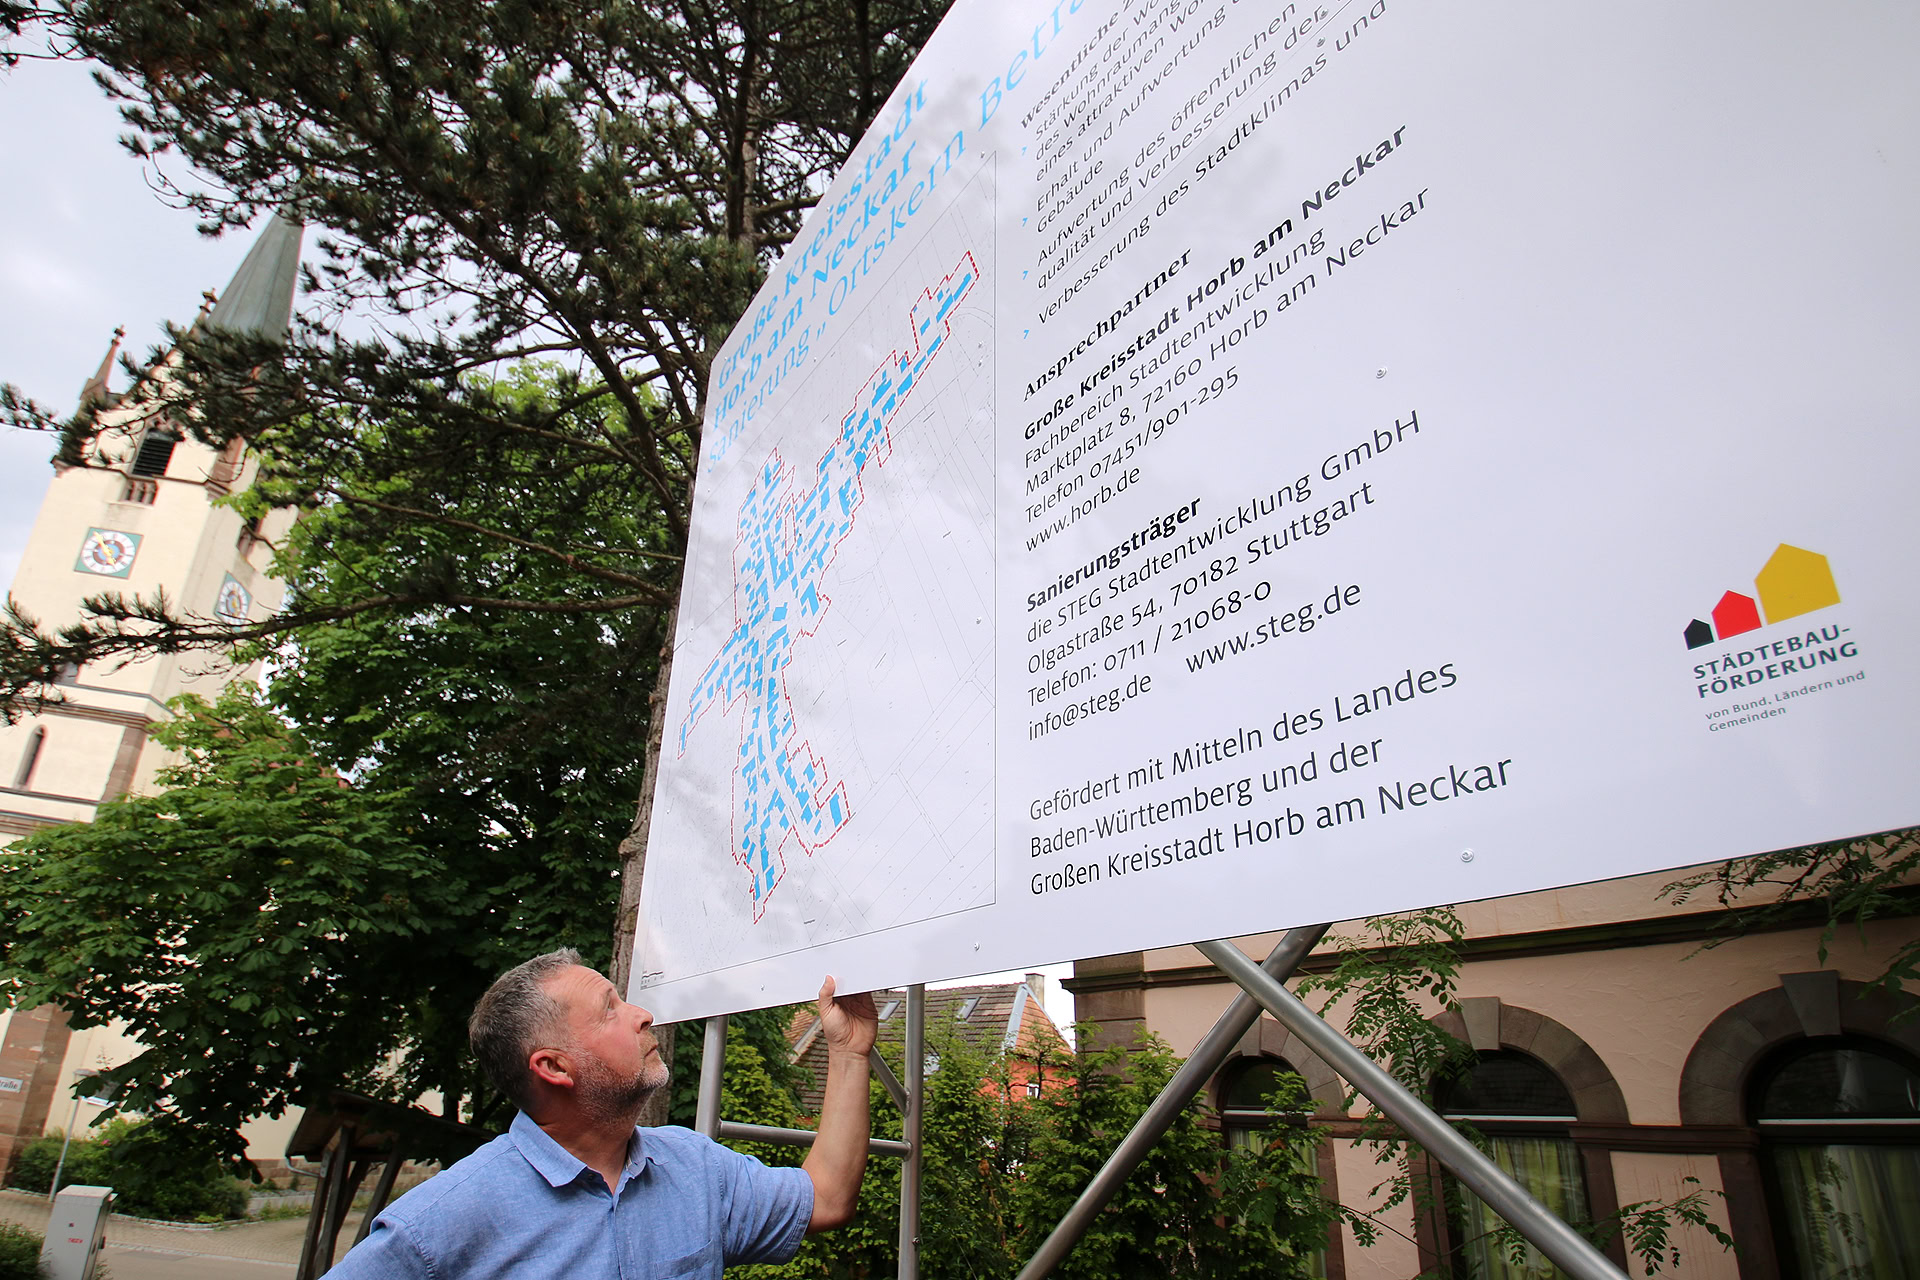 Große Kreisstadt
Horb am Neckar
Sanierung „Ortskern Betra
Wesentliche
Stärkung der
des Wohnraumang
eines attraktiven
› Erhalt und Aufwertung
Gebäude
› Aufwertung des öffentlichen
qualität und Verbesserung der
› Verbesserung des Stadtklimas und
Ansprechpartner
Große Kreisstadt Horb am Neckar
Fachbereich Stadtentwicklung
Marktplatz 8, 72160 Horb am Neckar
Telefon 07451/901-295
www.horb.de
Sanierungsträger
die STEG Stadtentwicklung GmbH
Olgastraße 54, 70182 Stuttgart
Telefon: 0711 / 21068-0
info@steg.de www.steg.de
Gefördert mit Mitteln des Landes
Baden-Württemberg und der
Großen Kreisstadt Horb am Neckar
STÄDTEBAU-
FÖRDERUNG
von Bund, Ländern und
Gemeinden